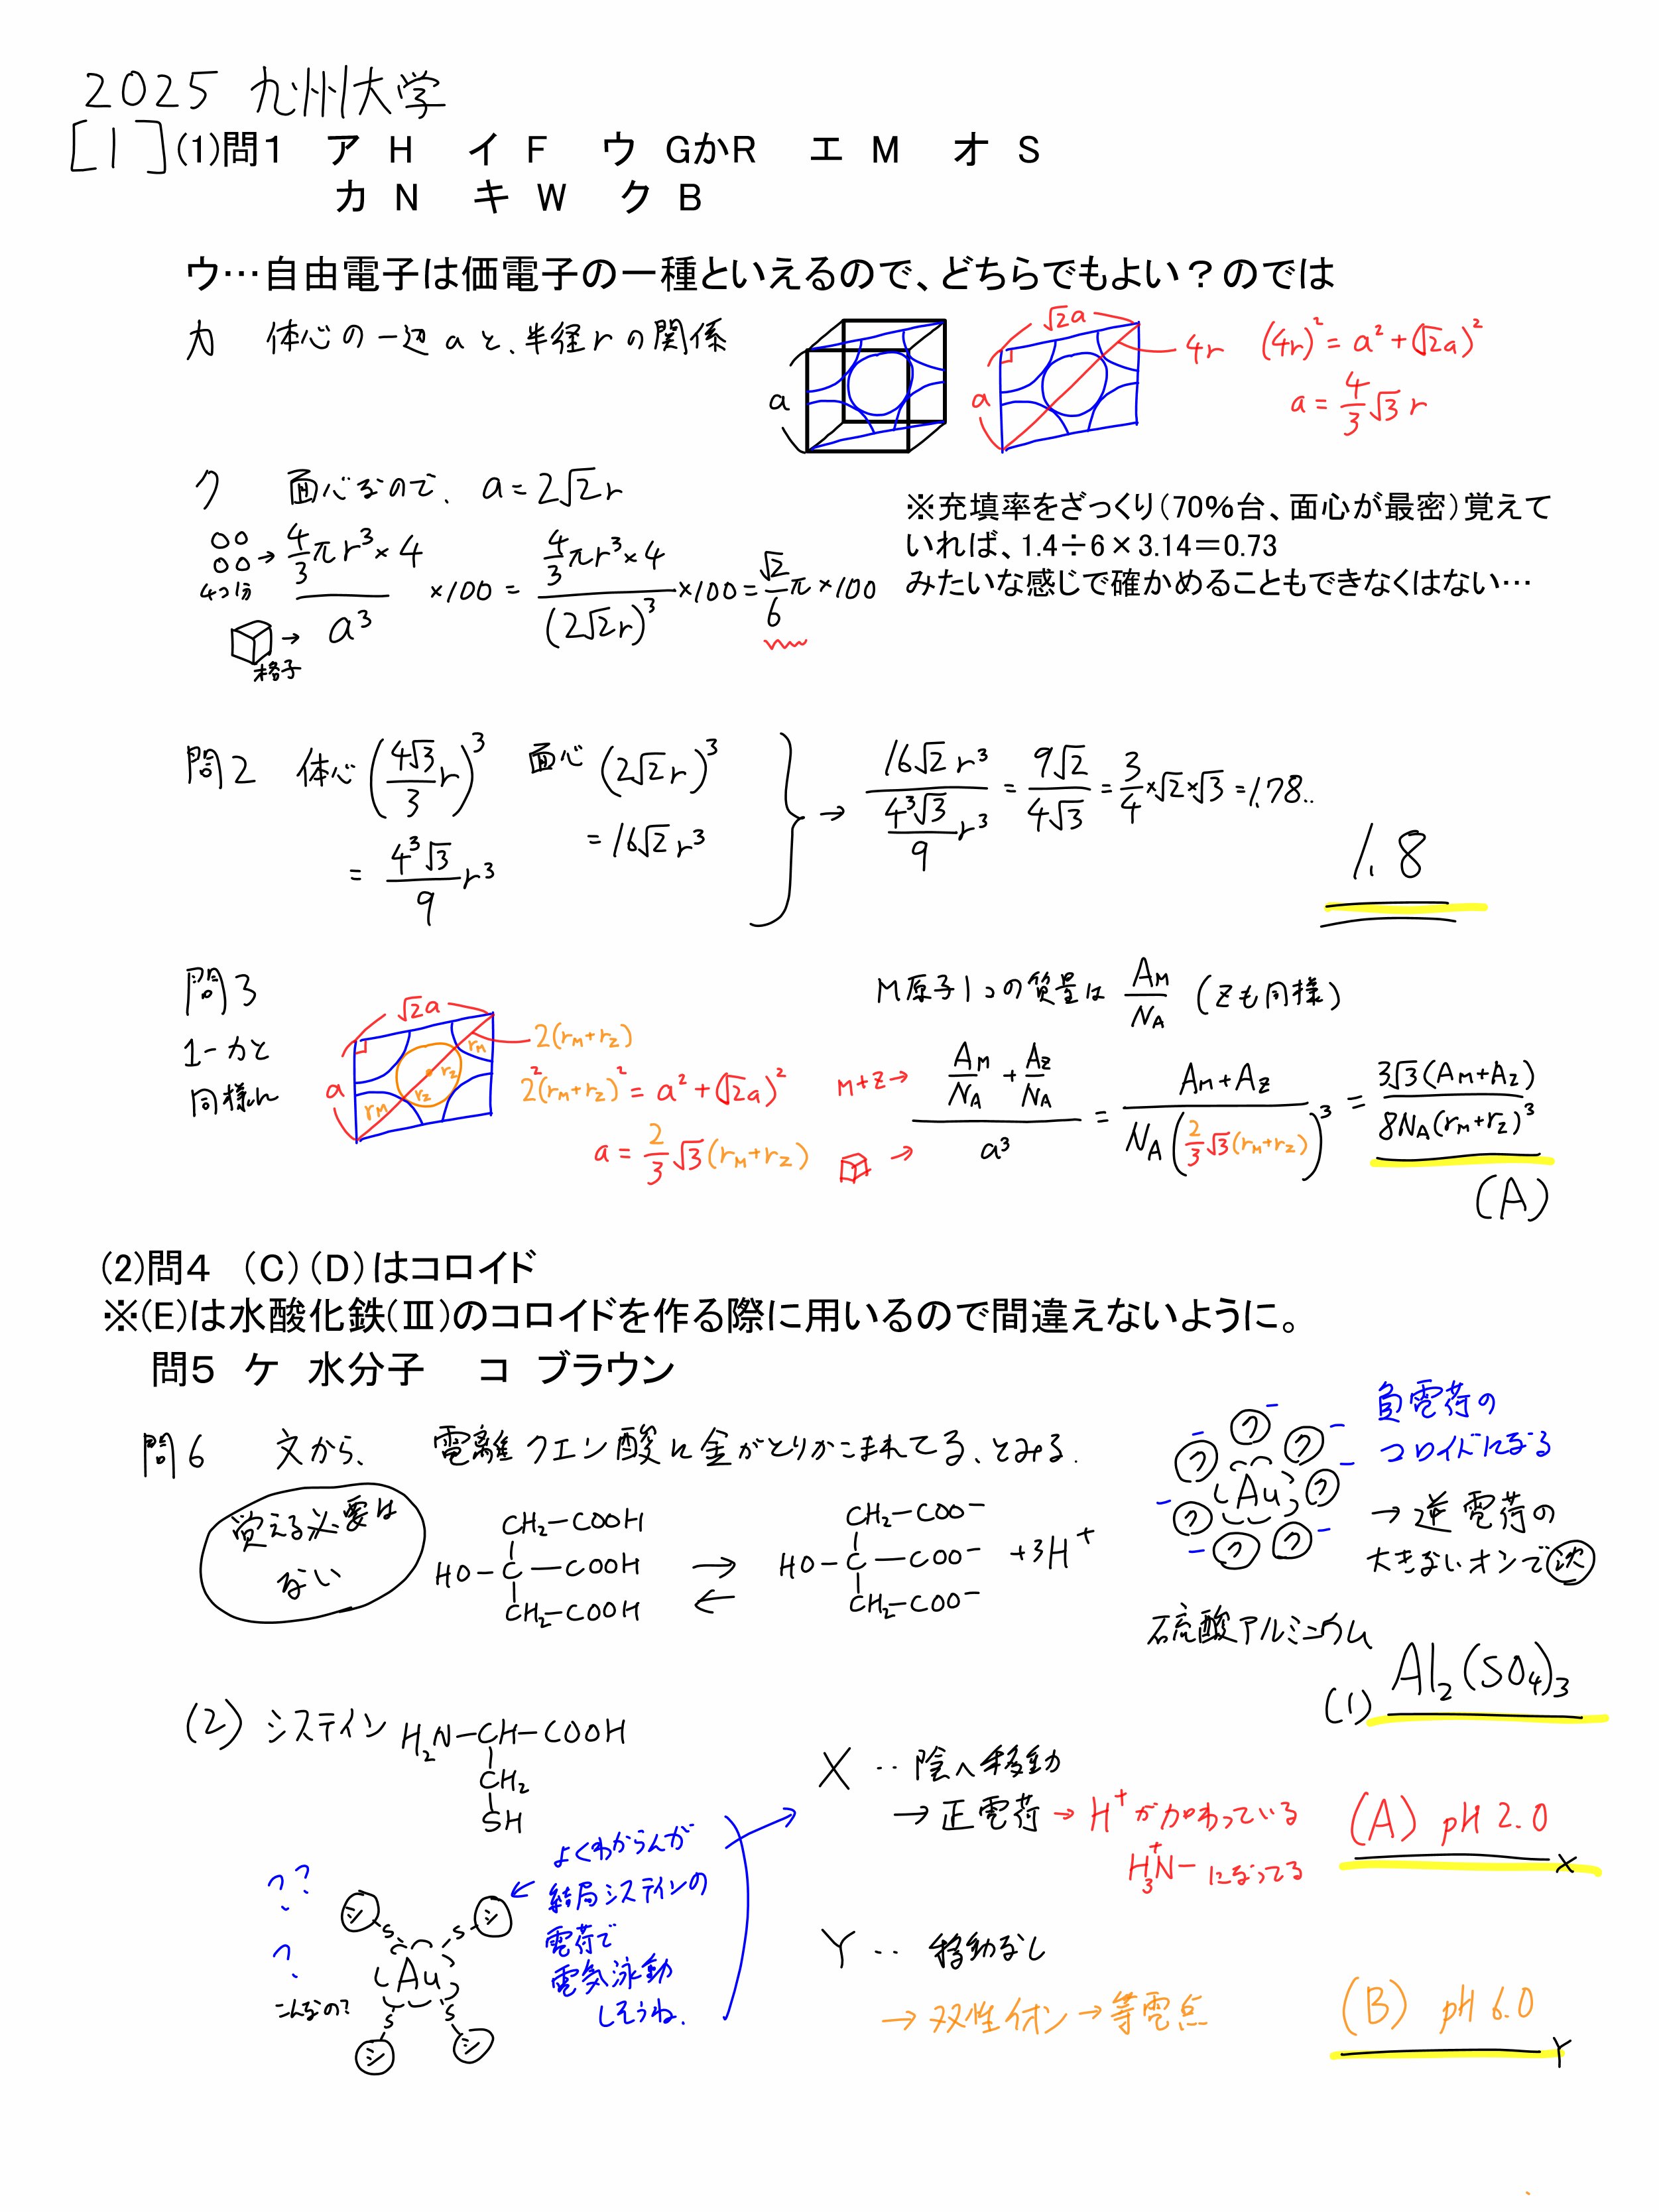 2025 九州大学
[1](1)問１　ア　H　イ　F　ウ　GかR　エ　M　オ　S
カ　N　キ　W　ク　B
ウ…自由電子は価電子の一種といえるので、どちらでもよい？のでは
カ　体心の一辺aと、半径rの関係
a
√2a
a
4r
(4r)² = a² + (√2a)²
a = 4/3 √3 r
ク　面心なので、a = 2√2r
4つ分 → 4/3 πr³×4 / a³ ×100 = 4/3 πr³×4 / (2√2r)³ ×100 = √2/6 π×100
格子 →
※充填率をざっくり（70%台、面心が最密）覚えて
いれば、1.4÷6×3.14＝0.73
みたいな感じで確かめることもできなくはない…
問2　体心 (4√3/3 r)³　面心 (2√2r)³
= 4³√3/9 r³　= 16√2 r³
→ 16√2 r³ / (4³√3/9 r³) = 9√2/4√3 = 3/4 ×√2×√3 = 1.78..
1.8
問3
1-カと
同様に
√2a
a
rM
rZ
rZ
rM
2(rM+rZ)
2²(rM+rZ)² = a² + (√2a)²
a = 2/3 √3 (rM+rZ)
M原子1コの質量は AM/NA (Zも同様)
M+Z → (AM/NA + AZ/NA) / a³ = (AM+AZ) / NA(2/3 √3(rM+rZ))³ = 3√3(AM+AZ) / 8NA(rM+rZ)³
→
(A)
(2)問４　（C）（D）はコロイド
※(E)は水酸化鉄(Ⅲ)のコロイドを作る際に用いるので間違えないように。
問５　ケ　水分子　コ　ブラウン
問6　文から、電離クエン酸に金がとりかこまれてる、とみる.
覚える必要は
ない
CH₂−COOH
HO−C−COOH
CH₂−COOH
⇄
CH₂−COO⁻
HO−C−COO⁻ +3H⁺
CH₂−COO⁻
Au
ク ク ク ク ク ク ク
負電荷の
コロイドになる
→逆電荷の
大きないオンで沈
硫酸アルミニウム
(1) Al₂(SO₄)₃
(2) システイン H₂N−CH−COOH
CH₂
SH
??
?
こんなの?
シ シ シ シ
S S S S
Au
← よくわからんが
結局システインの
電荷で
電気泳動
しそうね.
X ‥ 陰へ移動
→正電荷→H⁺が加わっている
H₃N⁺− になってる
(A) pH 2.0 X
Y ‥ 移動なし
→双性イオン→等電点
(B) pH 6.0 Y